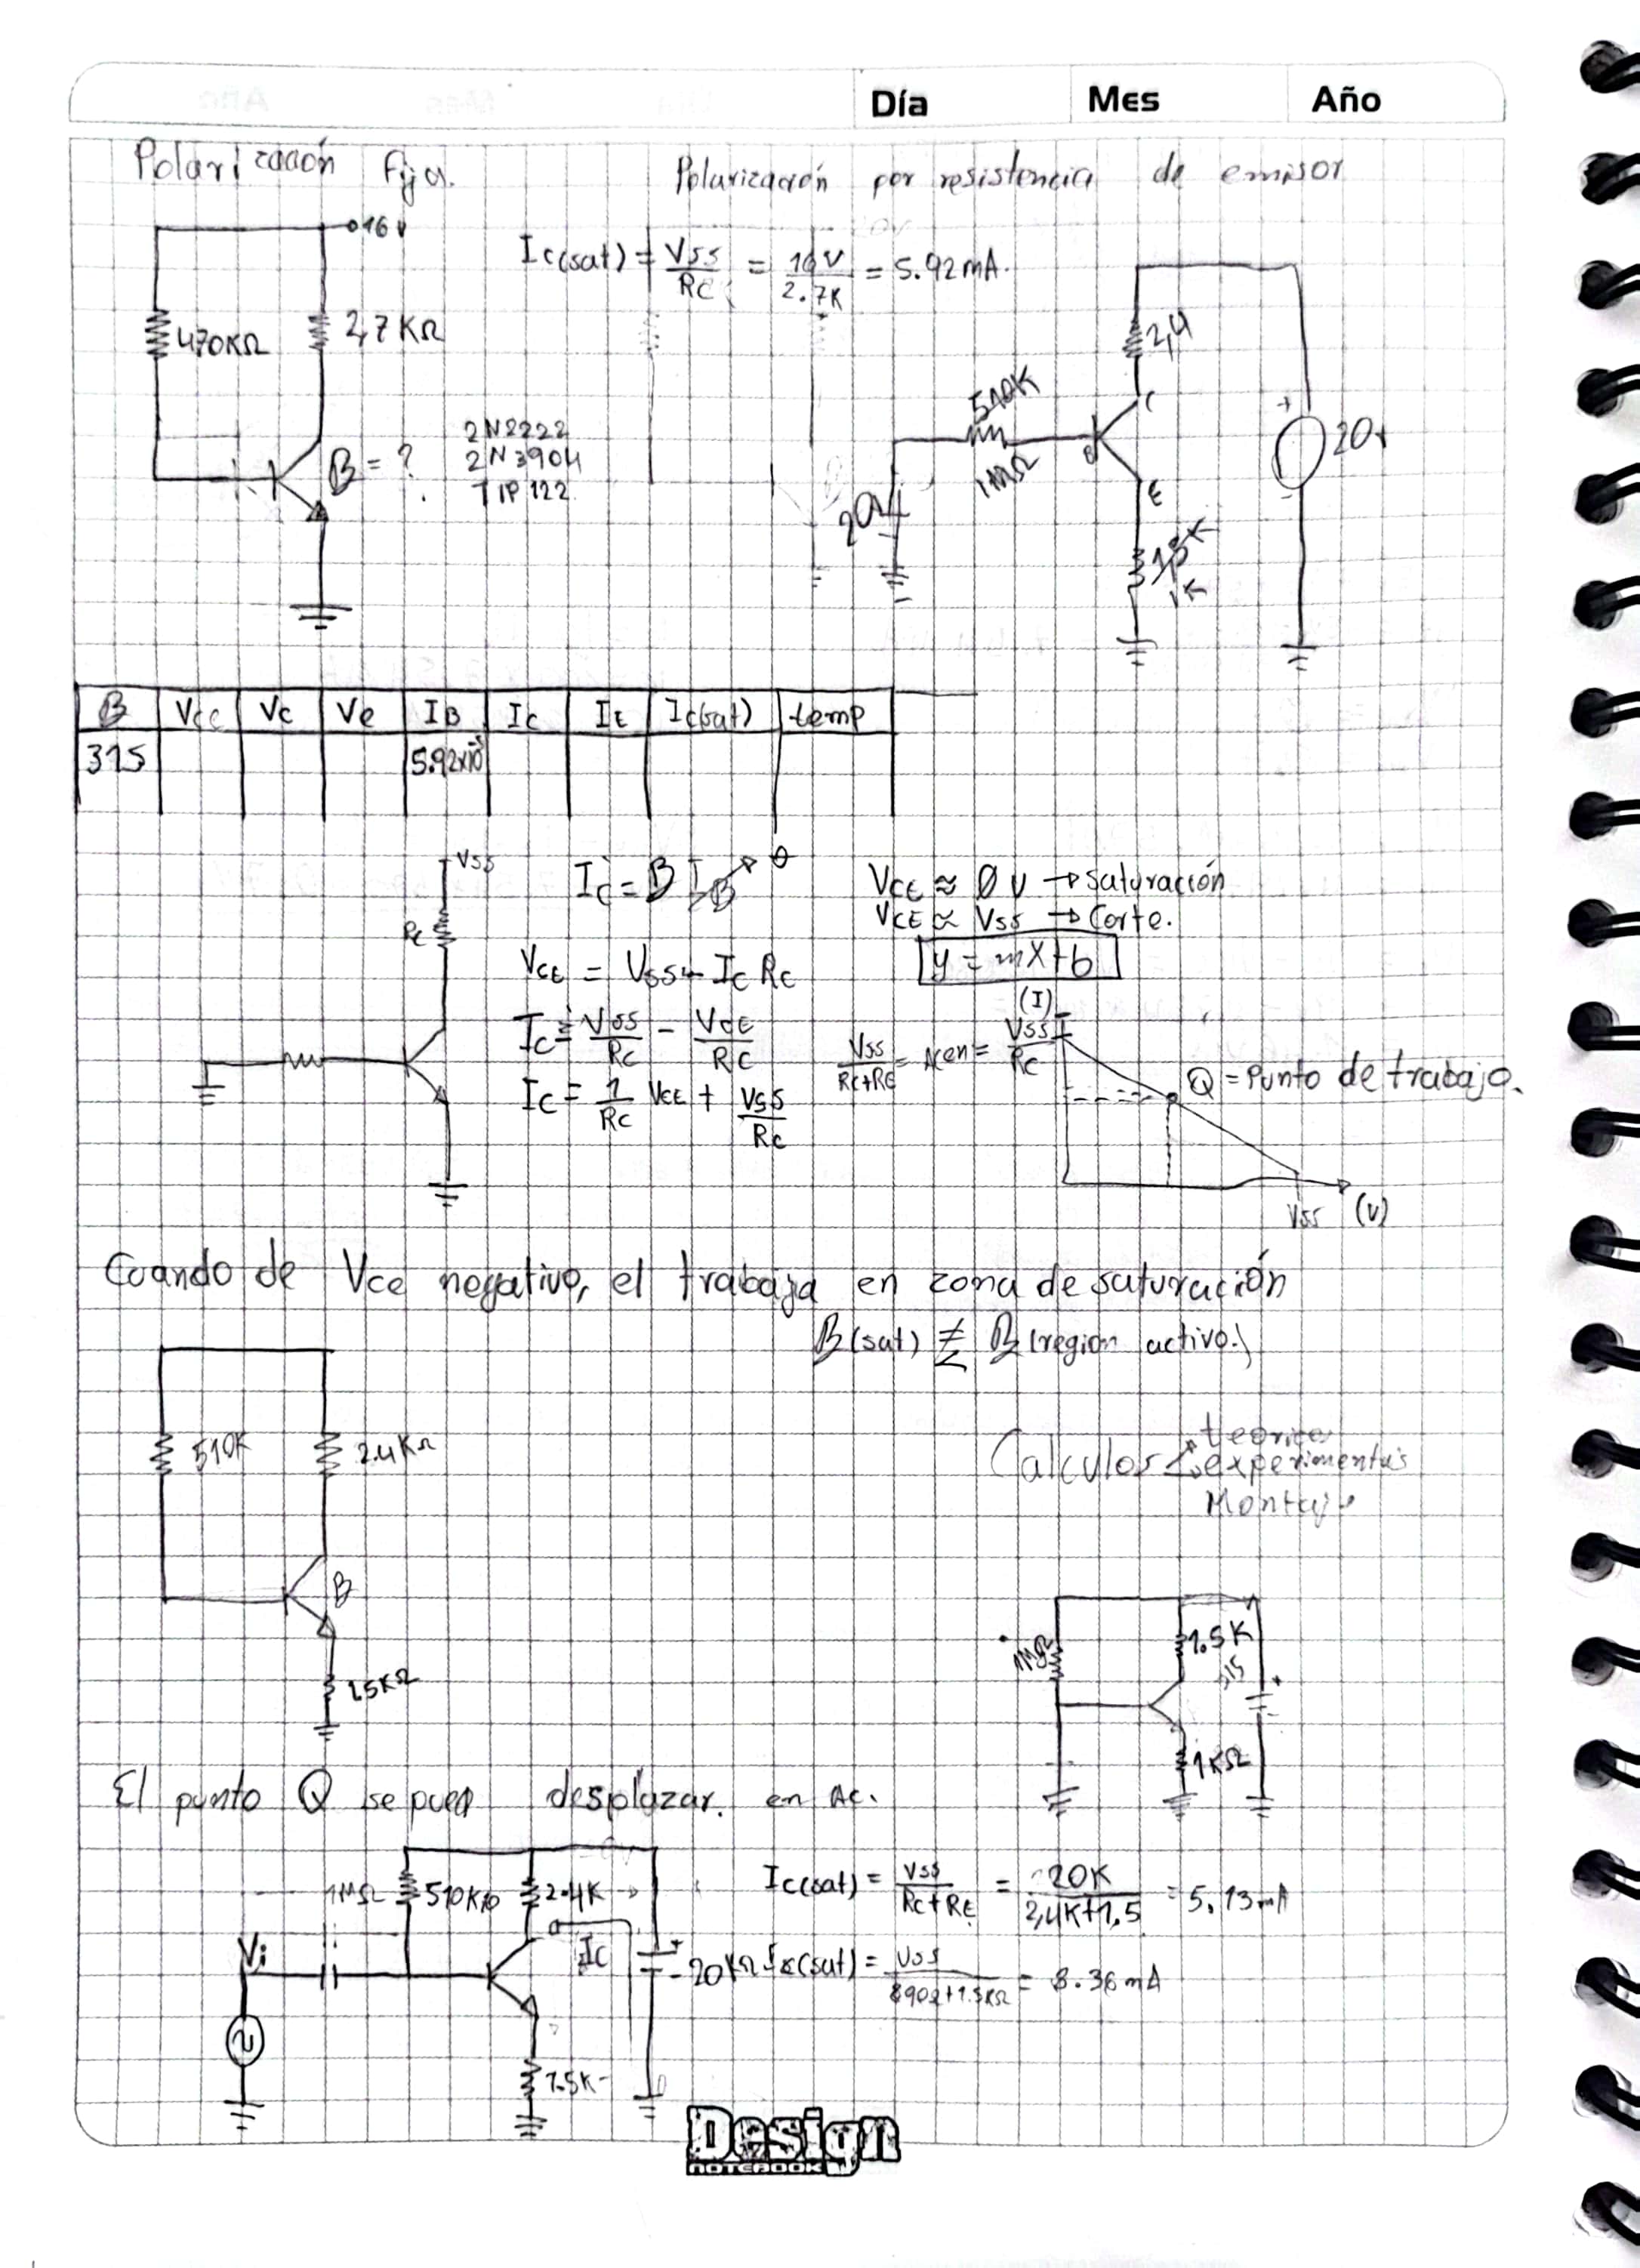 Día Mes Año
Polarización Fija.
Polarización por resistencia de emisor
16 v
470KΩ
2,7 KΩ
Ic(sat) = Vss/Rc = 16V/2.7K = 5.92mA.
B = ?
2N2222
2N3904
TIP 122
510K
1MΩ
2,4
C
B
E
20v
20v
1,5K
1K
B Vcc Vc Ve IB Ic IE Ic(sat) temp
315 5.92x10
Vss
Rc
Ic = B IB 0
VCE = Vss - Ic Rc
Ic = Vss/Rc - VCE/Rc
Ic = 1/Rc VCE + Vss/Rc
VCE ≈ 0 v → saturación
VCE ≈ Vss → Corte.
y = mX+b
(I)
Vss/Rc+RE = = Vss/Rc
Q = Punto de trabajo.
Vss (V)
Cuando de Vce negativo, el trabaja en zona de saturación
B(sat) ≠ B(region activo.)
510K
2.4KΩ
B
1.5KΩ
Calculos teorico
experimentas
Montaje
1MΩ
1.5K
315
1KΩ
El punto Q se pued desplazar. en AC.
1MΩ 510K 2.4K
Vi
Ic
20
1.5K
Ic(sat) = Vss/Rc+RE = 20K/2,4K+1.5 = 5.13mA
Ic(sat) = Vss/890Ω+1.5KΩ = 8.36mA
Design
NOTEBOOK